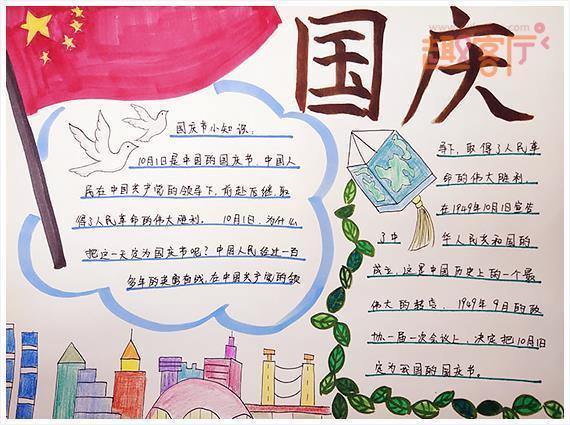 国庆
趣客厅
国庆节小知识:
10月1日是中国的国庆节,中国人
民在中国共产党的领导下,前赴后继,取
得了人民革命的伟大胜利。10月1日,为什么
把这一天定为国庆节呢?中国人民经过一百
多年的英勇奋战,在中国共产党的领
导下,取得了人民革
命的伟大胜利,
在1949年10月1日宣告
了中 华人民共和国的
成立,这是中国历史上的一个最
伟大的转变。1949年9月的政
协一届一次会议上,决定把10月1日
定为我国的国庆节。